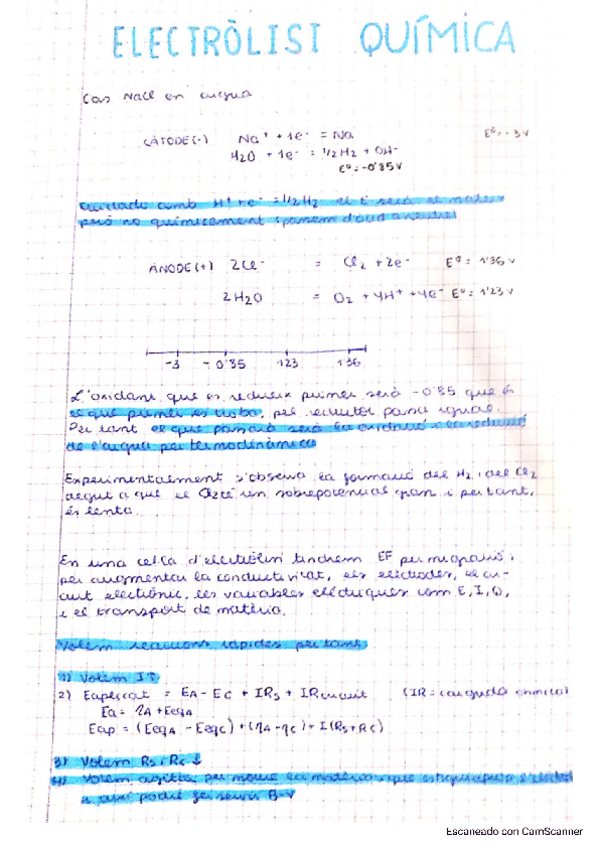 ELECTRÒLISI QUÍMICA
Cas NaCl en aigua
CÀTODE(-) Na⁺ + 1e⁻ = Na E⁰ = -3 V
H₂O + 1e⁻ = 1/2 H₂ + OH⁻
E⁰ = -0'85V
cuidado amb H⁺ + e⁻ = 1/2 H₂ el E serà el mateix
però no químicament
ÀNODE(+) 2Cl⁻ = Cl₂ + 2e⁻ E⁰ = 1'36 V
2H₂O = O₂ + 4H⁺ + 4e⁻ E⁰ = 1'23 V
-3 -0'85 1'23 1'36
L'oxidant que es redueix primer serà -0'85 que és
el que primer es troba, pel reductor passa igual.
Per tant el que passarà serà la oxidació i la reducció
de l'aigua per termodinàmica
Experimentalment s'observa la formació del H₂ i del Cl₂
degut a que el O₂ té un sobrepotencial gran i per tant,
és lenta.
En una cel·la d'electròlisi tindrem EF per migració i
per augmentar la conductivitat, els elèctrodes, el cir-
cuit electrònic, les variables elèctriques com E, I, Q,
i el transport de matèria.
Volem reaccions ràpides per tant
1) Volem I↑
2) Eaplicat = EA - EC + IRs + IRcircuit (IR = caiguda ohmica)
Ea = ηA + EeqA
Eap = (EeqA - EeqC) + (ηA - ηC) + I(Rs + Rc)
3) Volem Rs i Rc ↓
4) Volem agitar per moure la matèria que estigui
i així poder fer servir B-V
Escaneado con CamScanner